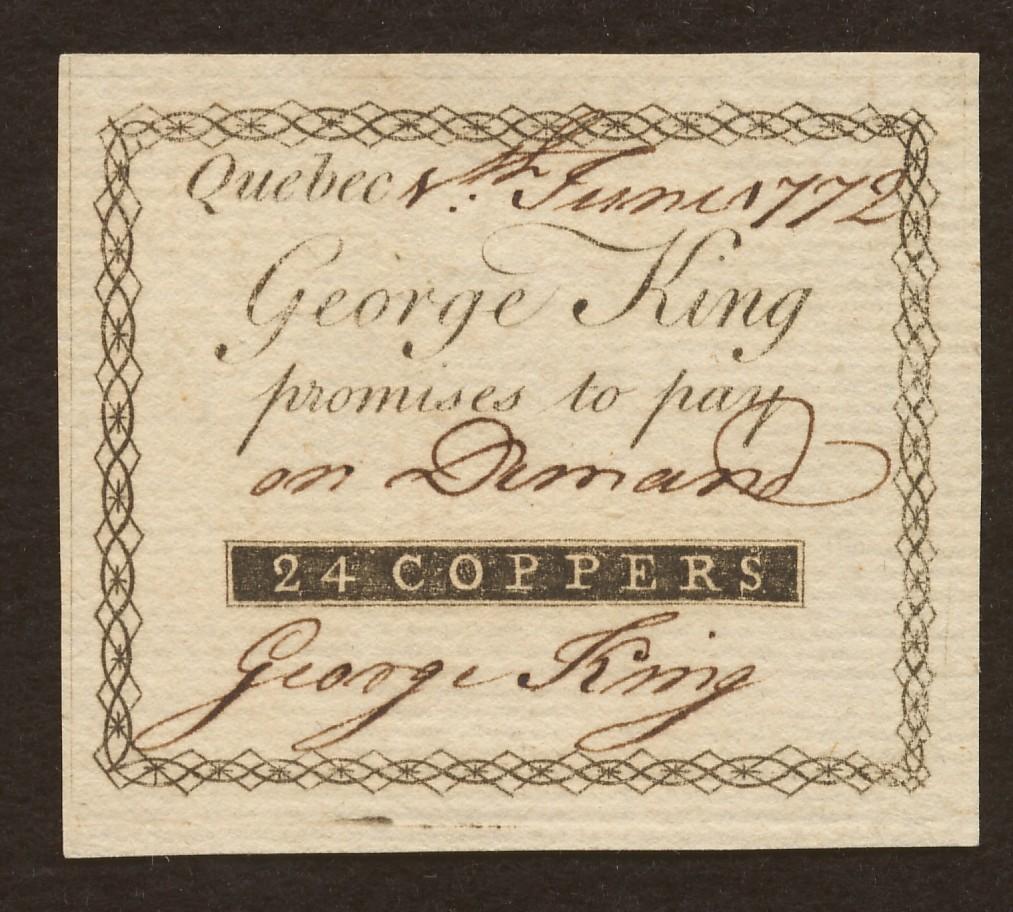 Quebec 1.th June 1772
George King
promises to pay
on Demand
24 COPPERS
George King